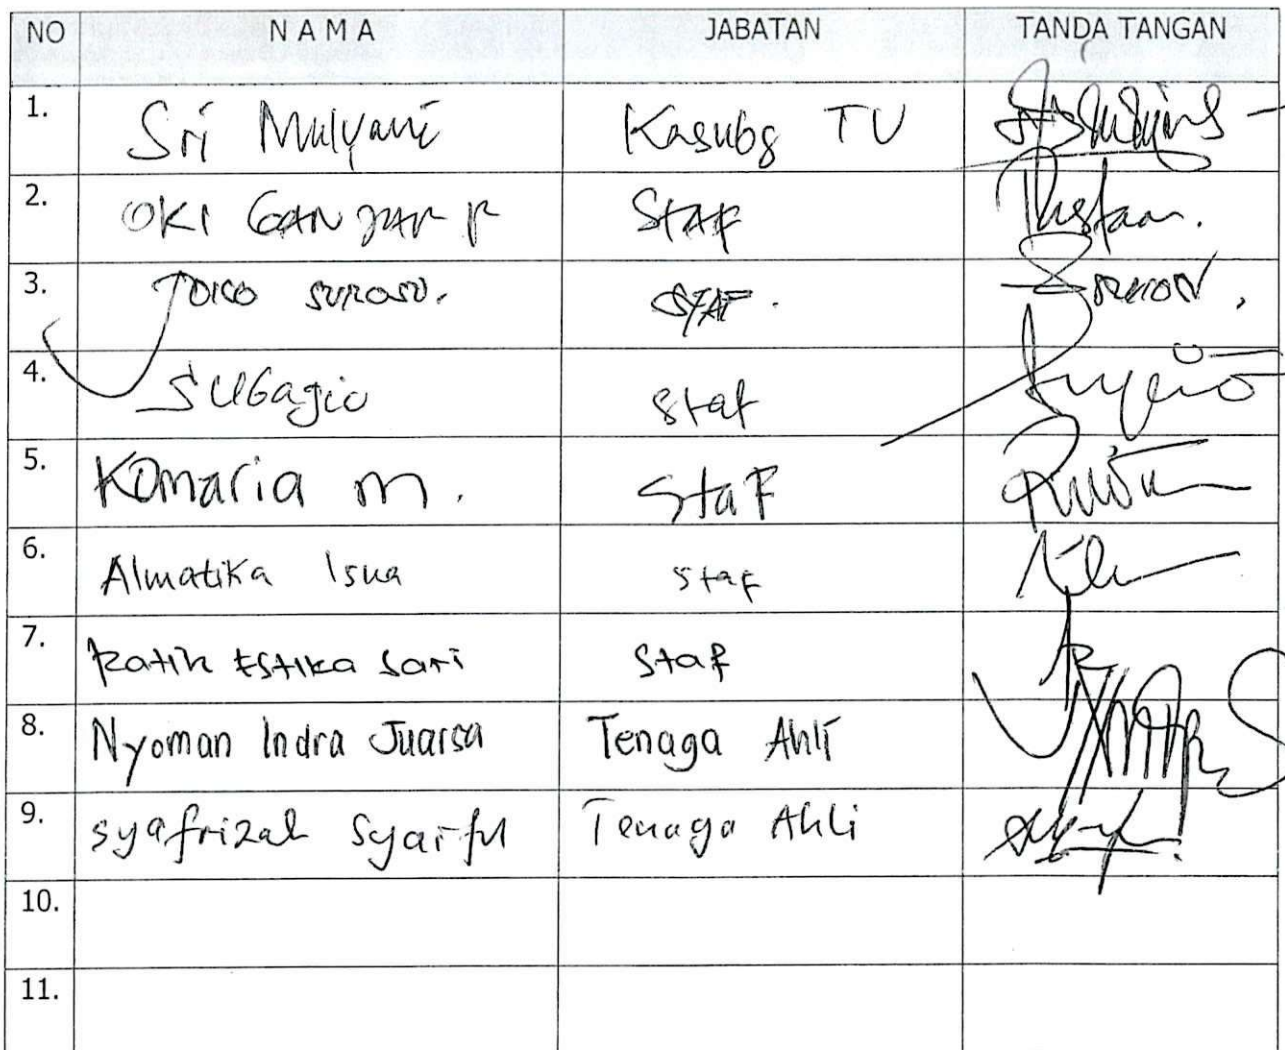 NO NAMA JABATAN TANDA TANGAN
1. Sri Mulyani Kasubg TU
2. OKI GANJAR P Staf
3. JOKO SUROSO. STAF.
4. SUGagio staf
5. Komaria m. StaF
6. Almatika Isna staf
7. Ratih Estika Sari Staf
8. Nyoman Indra Juarsa Tenaga Ahli
9. syafrizal Syaiful Tenaga Ahli
10.
11.